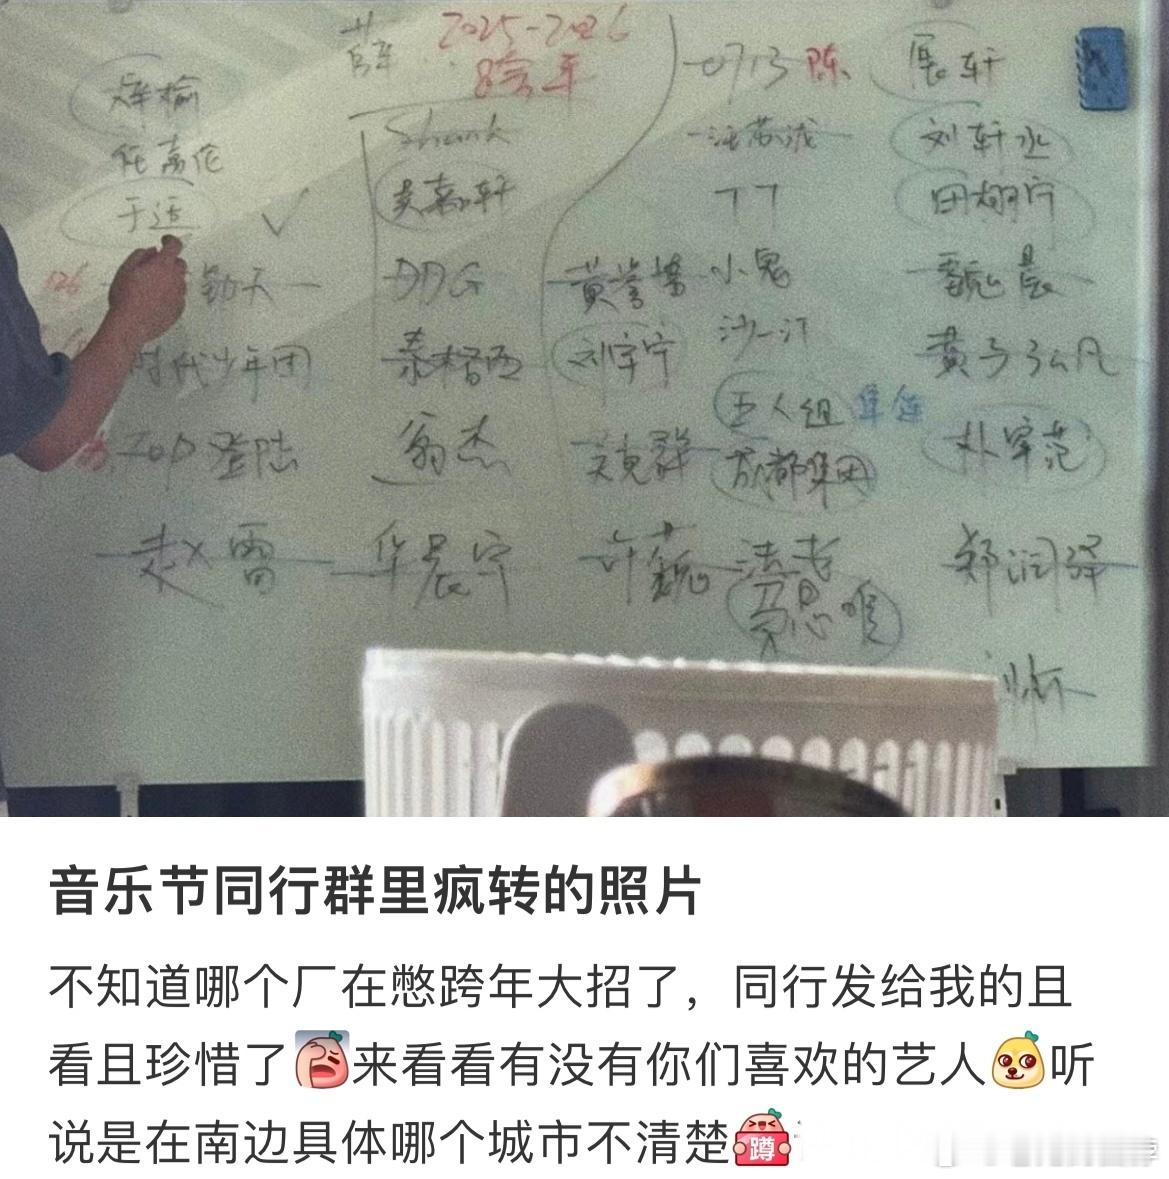 薛 2025-2026
跨年
-0713 陈
展轩
辉榆
任嘉伦
于适 √
126 勤天
时代少年团
Top登陆
赵雷
Shank
DDG
秦格西
翁杰
华晨宇
黄誉博
刘宇宁
吴克群
许巍
汪苏泷
丁丁
小鬼
沙一汀
五人组 集结
成都集团
法老
马思唯
刘轩丞
田栩宁
魏晨
黄子弘凡
朴宰范
郑润泽
音乐节同行群里疯转的照片
不知道哪个厂在憋跨年大招了，同行发给我的且
看且珍惜了来看看有没有你们喜欢的艺人听
说是在南边具体哪个城市不清楚
蹲